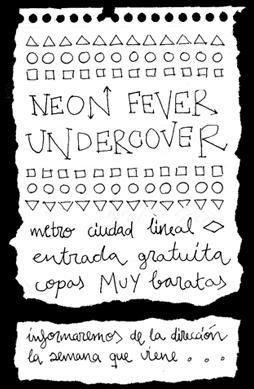 NEON FEVER
UNDERCOVER
metro ciudad lineal
entrada gratuita
copas MUY baratas
informaremos de la dirección
la semana que viene . . .